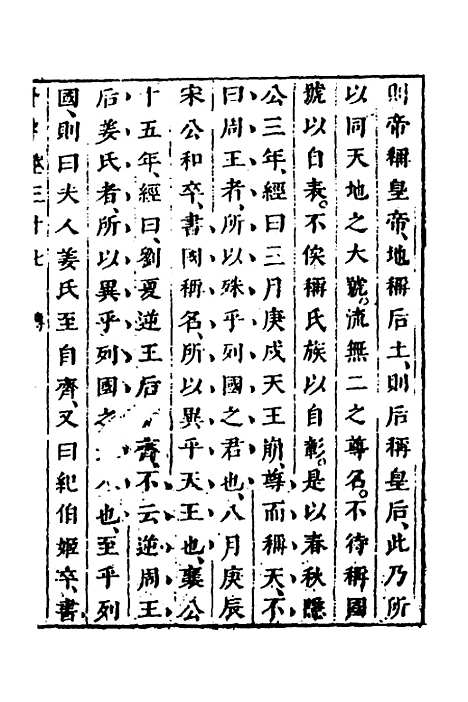 則帝稱皇帝、地稱后土、則后稱皇后、此乃所
以同天地之大號、流無二之尊名。不待稱國
號以自表。不俟稱氏族以自彰。是以春秋隱
公三年、經曰三月庚戌天王崩、尊而稱天、不
曰周王者、所以殊乎列國之君也、八月庚辰
宋公和卒、書國稱名、所以異乎天王也、襄公
十五年、經曰、劉夏逆王后 齊、不云逆周王
后姜氏者、所以異乎列國之 也、至乎列
國、則曰夫人姜氏至自齊、又曰紀伯姬卒、書
卷三十七